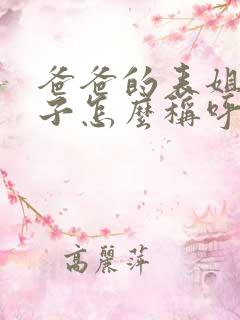 爸爸的表姐
子怎麼稱呼
高麗萍